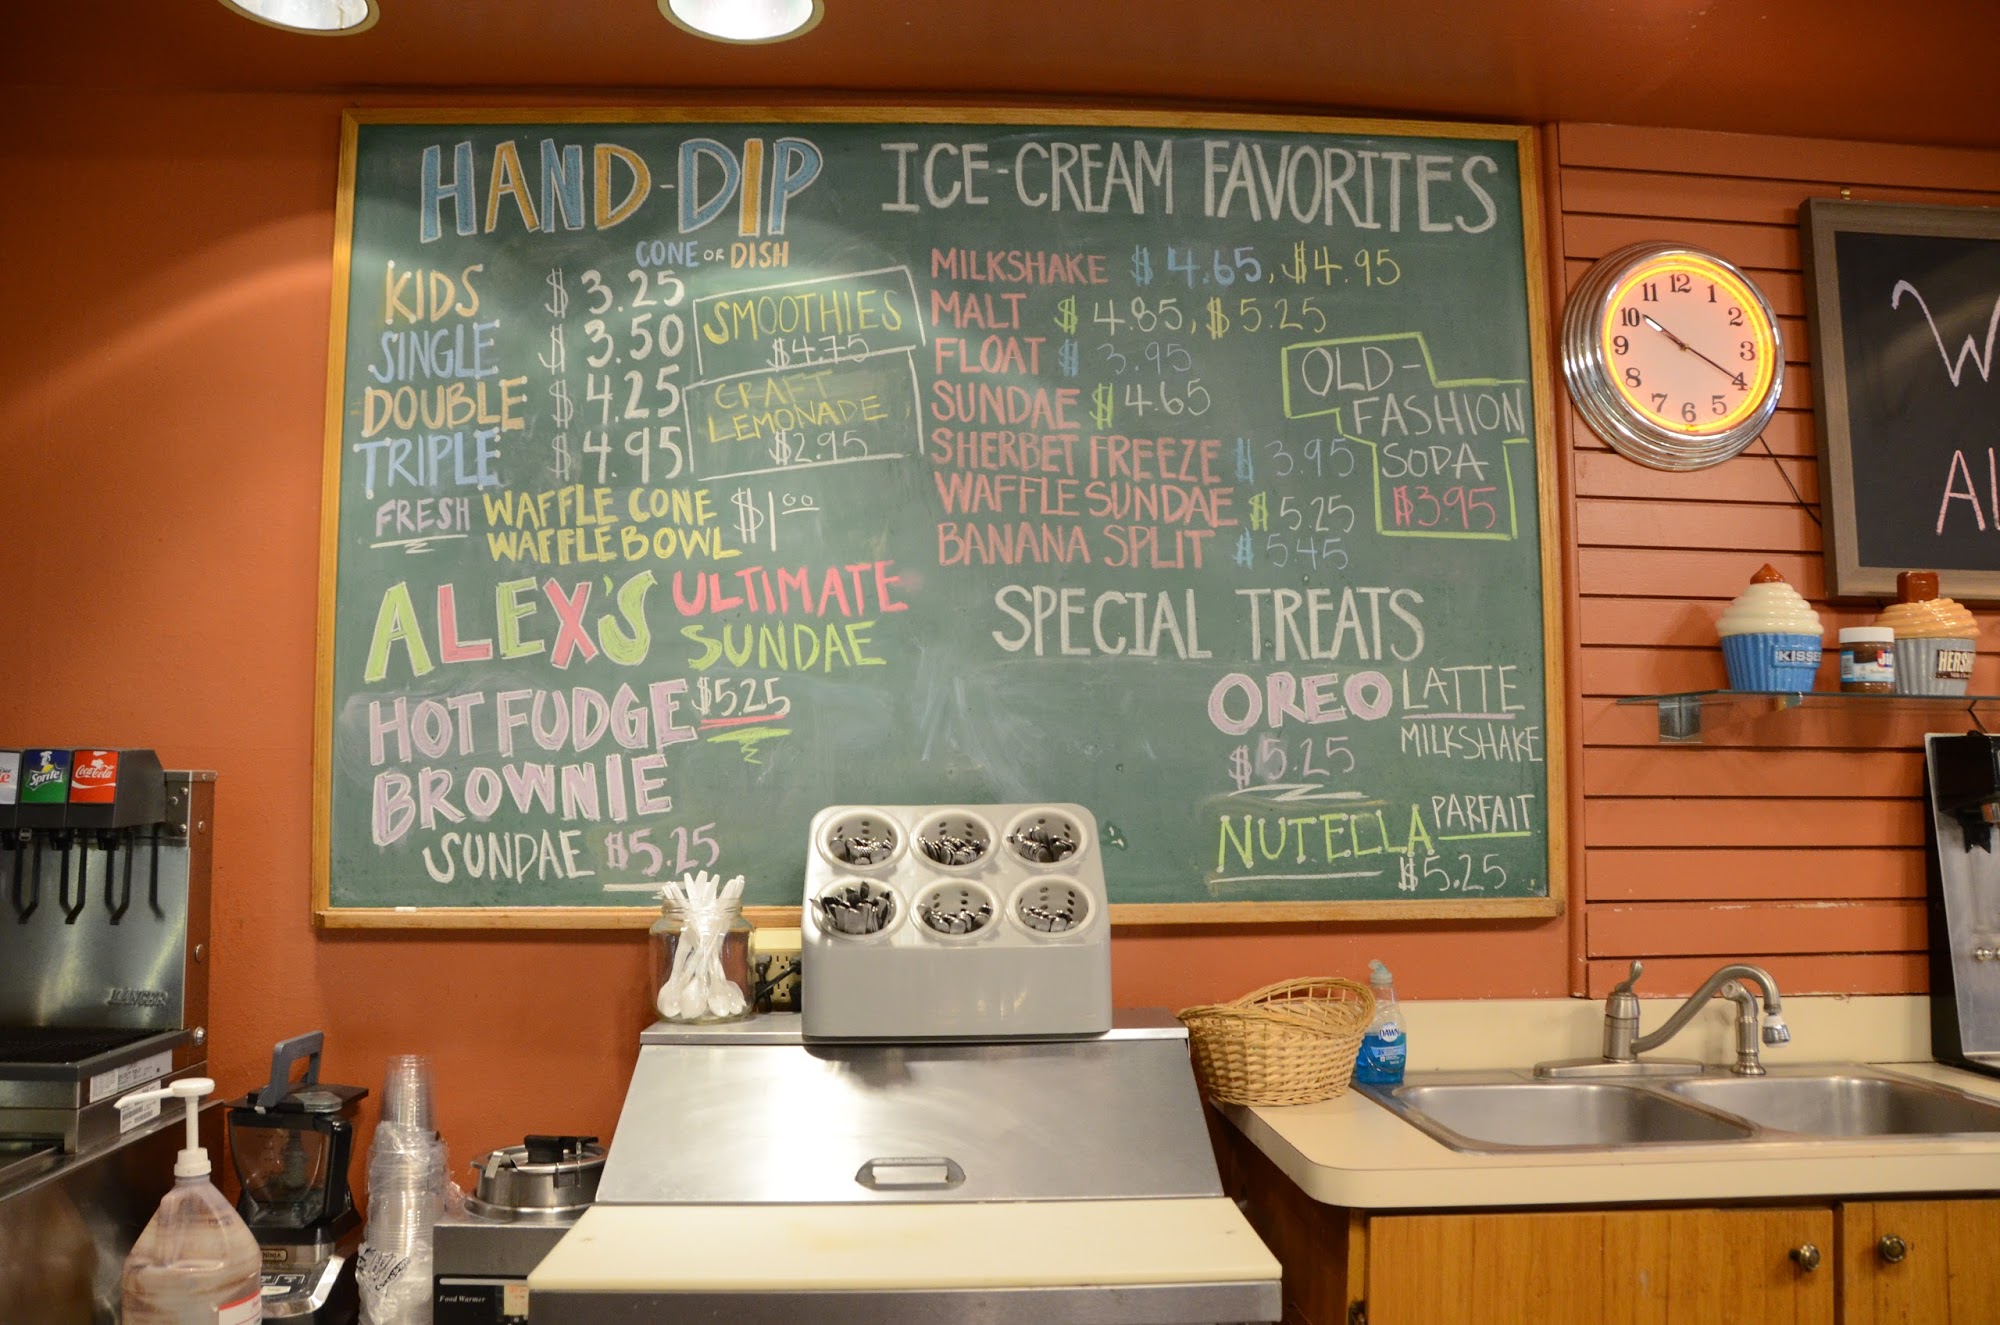 HAND-DIP
CONE OR DISH
KIDS $3.25
SINGLE $3.50
DOUBLE $4.25
TRIPLE $4.95
FRESH WAFFLE CONE $1.00
WAFFLE BOWL
SMOOTHIES
$4.75
CRAFT
LEMONADE
$2.95
ALEX'S ULTIMATE
SUNDAE
$5.25
HOT FUDGE
BROWNIE
SUNDAE $5.25
ICE-CREAM FAVORITES
MILKSHAKE $4.65, $4.95
MALT $4.85, $5.25
FLOAT $3.95
SUNDAE $4.65
SHERBET FREEZE $3.95
WAFFLE SUNDAE $5.25
BANANA SPLIT $5.45
OLD-
FASHION
SODA
$3.95
SPECIAL TREATS
OREO LATTE
MILKSHAKE
$5.25
NUTELLA PARFAIT
$5.25
12
1
2
3
4
5
6
7
8
9
10
11
W
AL
KISSES
HERSH
Sprite
Coca-Cola
LANCER
DAWN
NINJA
Food Warmer